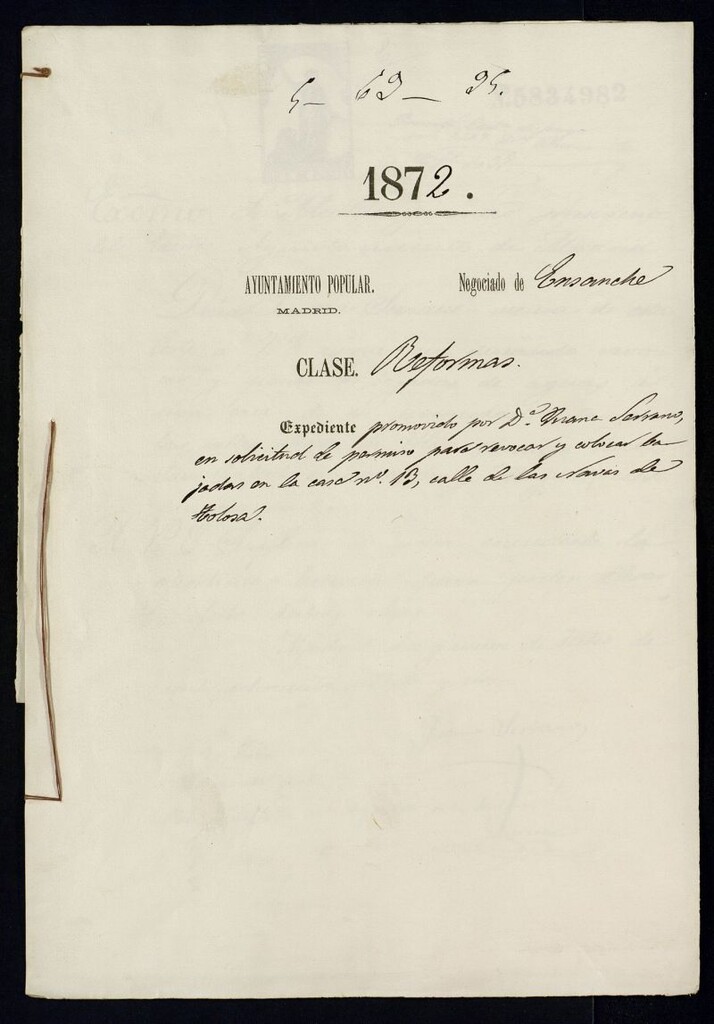 5- 63 - 25.
1872.
AYUNTAMIENTO POPULAR. Negociado de Ensanche
MADRID.
CLASE. Reformas.
Expediente promovido por D.ª Serrano,
en solicitud de permiso para revocar y colocar ba
jadas en la casa nº. 13, calle de las Navas de
Tolosa.